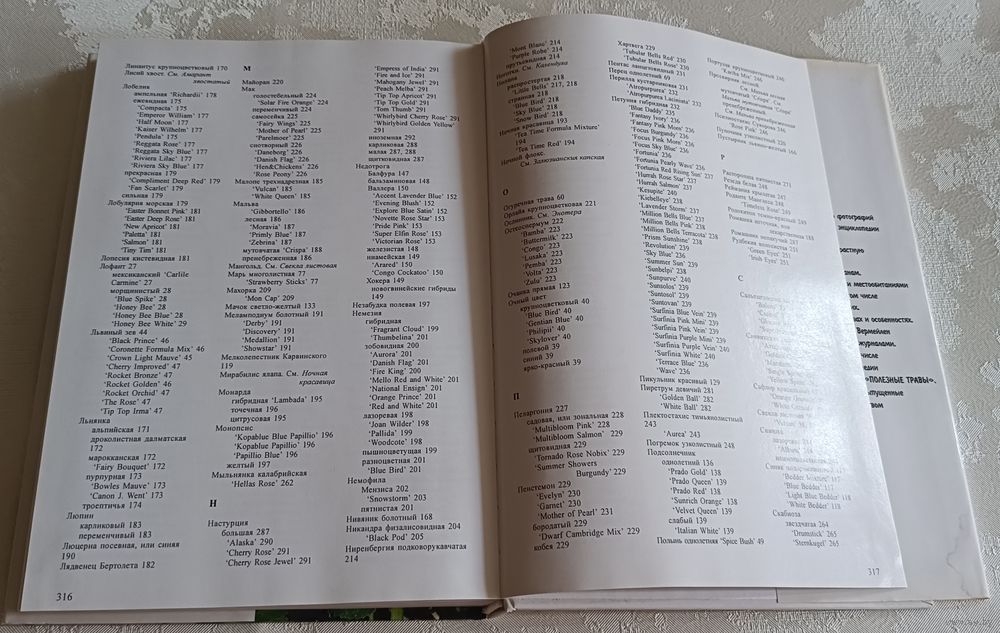 Линантус крупноцветковый 170
Лисий хвост. См. Амарант
хвостатый
Лобелия
ампельная 'Richardii' 178
ежевидная 175
'Compacta' 175
'Emperor William' 177
'Half Moon' 177
'Kaiser Wilhelm' 177
'Pendula' 175
'Reggata Rose' 177
'Reggata Sky Blue' 177
'Riviera Lilac' 177
'Riviera Sky Blue' 177
прекрасная 179
'Compliment Deep Red' 179
'Fan Scarlet' 179
сильная 179
Лобулярия морская 179
'Easter Bonnet Pink' 181
'Easter Deep Rose' 181
'New Apricot' 181
'Paletta' 181
'Salmon' 181
'Tiny Tim' 181
Лопезия кистевидная 181
Лофант 27
мексиканский 'Carlile
Carmine' 27
морщинистый 28
'Blue Spike' 28
'Honey Bee' 28
'Honey Bee Blue' 28
'Honey Bee White' 29
Львиный зев 44
'Black Prince' 46
'Coronette Formula Mix' 46
'Crown Light Mauve' 45
'Cherry Improved' 47
'Rocket Bronze' 47
'Rocket Golden' 46
'Rocket Orchid' 47
'The Rose' 47
'Tip Top Irma' 47
Льнянка
альпийская 171
дроколистная далматская
172
марокканская 172
'Fairy Bouquet' 172
пурпурная 173
'Bowles Mauve' 173
'Canon J. Went' 173
троептичья 174
Люпин
карликовый 183
переменчивый 183
Люцерна посевная, или синяя
190
Лядвенец Бертолета 182
М
Майоран 220
Мак
голостебельный 224
'Solar Fire Orange' 224
переменчивый 224
самосейка 225
'Fairy Wings' 225
'Mother of Pearl' 225
'Parelmoer' 225
снотворный 226
'Daneborg' 226
'Danish Flag' 226
'Hen&Chickens' 226
'Rose Peony' 226
Малопе трехнадрезная 185
'Vulcan' 185
'White Queen' 185
Мальва
'Gibbortello' 186
лесная 186
'Moravia' 187
'Primly Blue' 187
'Zebrina' 187
мутовчатая 'Crispa' 188
пренебреженная 186
Мангольд. См. Свекла листовая
Марь многолистная 77
'Strawberry Sticks' 77
Махорка 209
'Mon Cap' 209
Мачок светло-желтый 133
Меламподиум болотный 191
'Derby' 191
'Discovery' 191
'Medallion' 191
'Showstar' 191
Мелколепестник Карвинского
119
Мирабилис ялапа. См. Ночная
красавица
Монарда
гибридная 'Lambada' 195
точечная 196
цитрусовая 195
Монопсис
'Kopablue Blue Papillio' 196
'Kopablue Papillio' 196
'Papillio Blue' 196
желтый 197
Мыльнянка калабрийская
'Hellas Rose' 262
Н
Настурция
большая 287
'Alaska' 290
'Cherry Rose' 291
'Cherry Rose Jewel' 291
'Empress of India' 291
'Fire and Ice' 291
'Mahogany Jewel' 291
'Peach Melba' 291
'Tip Top Apricot' 291
'Tip Top Gold' 291
'Tom Thumb' 291
'Whirlybird Cherry Rose' 291
'Whirlybird Golden Yellow'
291
иноземная 292
карликовая 288
малая 287, 288
щитковидная 287
Недотрога
Бальфура 147
бальзаминовая 148
Валлера 150
'Accent Lavender Blue' 152
'Evening Blush' 152
'Explore Blue Satin' 152
'Novette Rose Star' 153
'Pride Pink' 153
'Super Elfin Rose' 153
'Victorian Rose' 153
железистая 148
инамейская 149
'Arared' 150
'Congo Cockatoo' 150
Хокера 149
новогвинейские гибриды
149
Незабудка полевая 197
Немезия
гибридная
'Fragrant Cloud' 199
'Thumbelina' 201
зобовидная 200
'Aurora' 201
'Danish Flag' 201
'Fire King' 200
'Mello Red and White' 201
'National Ensign' 201
'Orange Prince' 201
'Red and White' 201
лазоревая 198
'Joan Wilder' 198
'Pallida' 199
'Woodcote' 198
пышноцветущая 199
разноцветная 201
'Blue Bird' 201
Немофила
Мензиса 202
'Snowstorm' 203
пятнистая 201
Нивяник болотный 168
Никандра физалисовидная 204
'Black Pod' 205
Ниренбергия подковорукавчатая
214
316
'Mont Blanc' 214
'Purple Robe' 214
прутьевидная 214
Ноготки. См. Календула
Нолана
распростертая 218
'Little Bells' 217, 218
странная 218
'Blue Bird' 218
'Sky Blue' 218
'Snow Bird' 218
Ночная красавица 193
'Tea Time Formula Mixture'
194
'Tea Time Red' 194
Ночной флокс.
См. Залюзианския капская
О
Огуречная трава 60
Орлайя крупноцветковая 221
Ослинник. См. Энотера
Остеоспермум 222
'Bamba' 223
'Buttermilk' 223
'Congo' 223
'Lusaka' 223
'Pemba' 223
'Volta' 223
'Zulu' 223
Очанка прямая 123
Очный цвет
крупноцветковый 40
'Blue Bird' 40
'Gentian Blue' 40
'Philipii' 40
'Skylover' 40
полевой 39
синий 39
ярко-красный 39
П
Пеларгония 227
садовая, или зональная 228
'Multibloom Pink' 228
'Multibloom Salmon' 229
щитовидная 229
'Tornado Rose Nobix' 229
'Summer Showers
Burgundy' 229
Пенстемон 229
'Evelyn' 230
'Garnet' 230
'Mother of Pearl' 231
бородатый 229
'Dwarf Cambridge Mix' 229
кобея 229
Хартвега 229
'Tubular Bells Red' 230
'Tubular Bells Rose' 230
Пентас ланцетовидный 231
Перец однолетний 69
Перилла кустарниковая 231
'Atropurpurea' 232
'Atropurpurea Laciniata' 232
Петуния гибридная 232
'Blue Daddy' 235
'Fantasy Ivory' 236
'Fantasy Pink Moon' 236
'Focus Burgundy' 236
'Focus Pink More' 236
'Focus Sky Blue' 236
'Fortunia' 236
'Fortunia Pearly Wave' 236
'Fortunia Red Rising Sun' 237
'Hurrah Rose Star' 237
'Hurrah Salmon' 237
'Kesupite' 240
'Kiebelleye' 238
'Lavender Storm' 237
'Million Bells Blue' 237
'Million Bells Pink' 238
'Million Bells Terracota' 238
'Prism Sunshine' 238
'Revolution' 239
'Sky Blue' 236
'Summer Sun' 239
'Sunbelpi' 238
'Sunpurve' 240
'Sunsolos' 239
'Suntosol' 239
'Suntovan' 239
'Surfinia Blue Vein' 239
'Surfinia Pink Mini' 239
'Surfinia Pink Vein' 239
'Surfinia Purple Mini' 239
'Surfinia Purple Vein' 240
'Surfinia White' 240
'Terrace Blue' 236
'Wave' 236
Пикульник красивый 129
Пиретрум девичий 281
'Golden Ball' 282
'White Ball' 282
Плектостахис тимьянолистный
243
'Aurea' 243
Погремок узколистный 248
Подсолнечник
однолетний 136
'Prado Gold' 138
'Prado Queen' 139
'Prado Red' 138
'Sunrich Orange' 138
'Velvet Queen' 139
слабый 139
'Italian White' 139
Полынь однолетняя 'Spice Bush' 49
Портулак крупноцветковый 246
'Kariba Mix' 246
Просвирник
Р
С
Скабиоза
звездчатая 264
'Drumstick' 265
'Sternkugel' 265
317
фотографий
нциклопедии
растную
м числе
х и особенностях.
Вермейлен
журналами.
числе
едии
«ПОЛЕЗНЫЕ ТРАВЫ».
пущенные